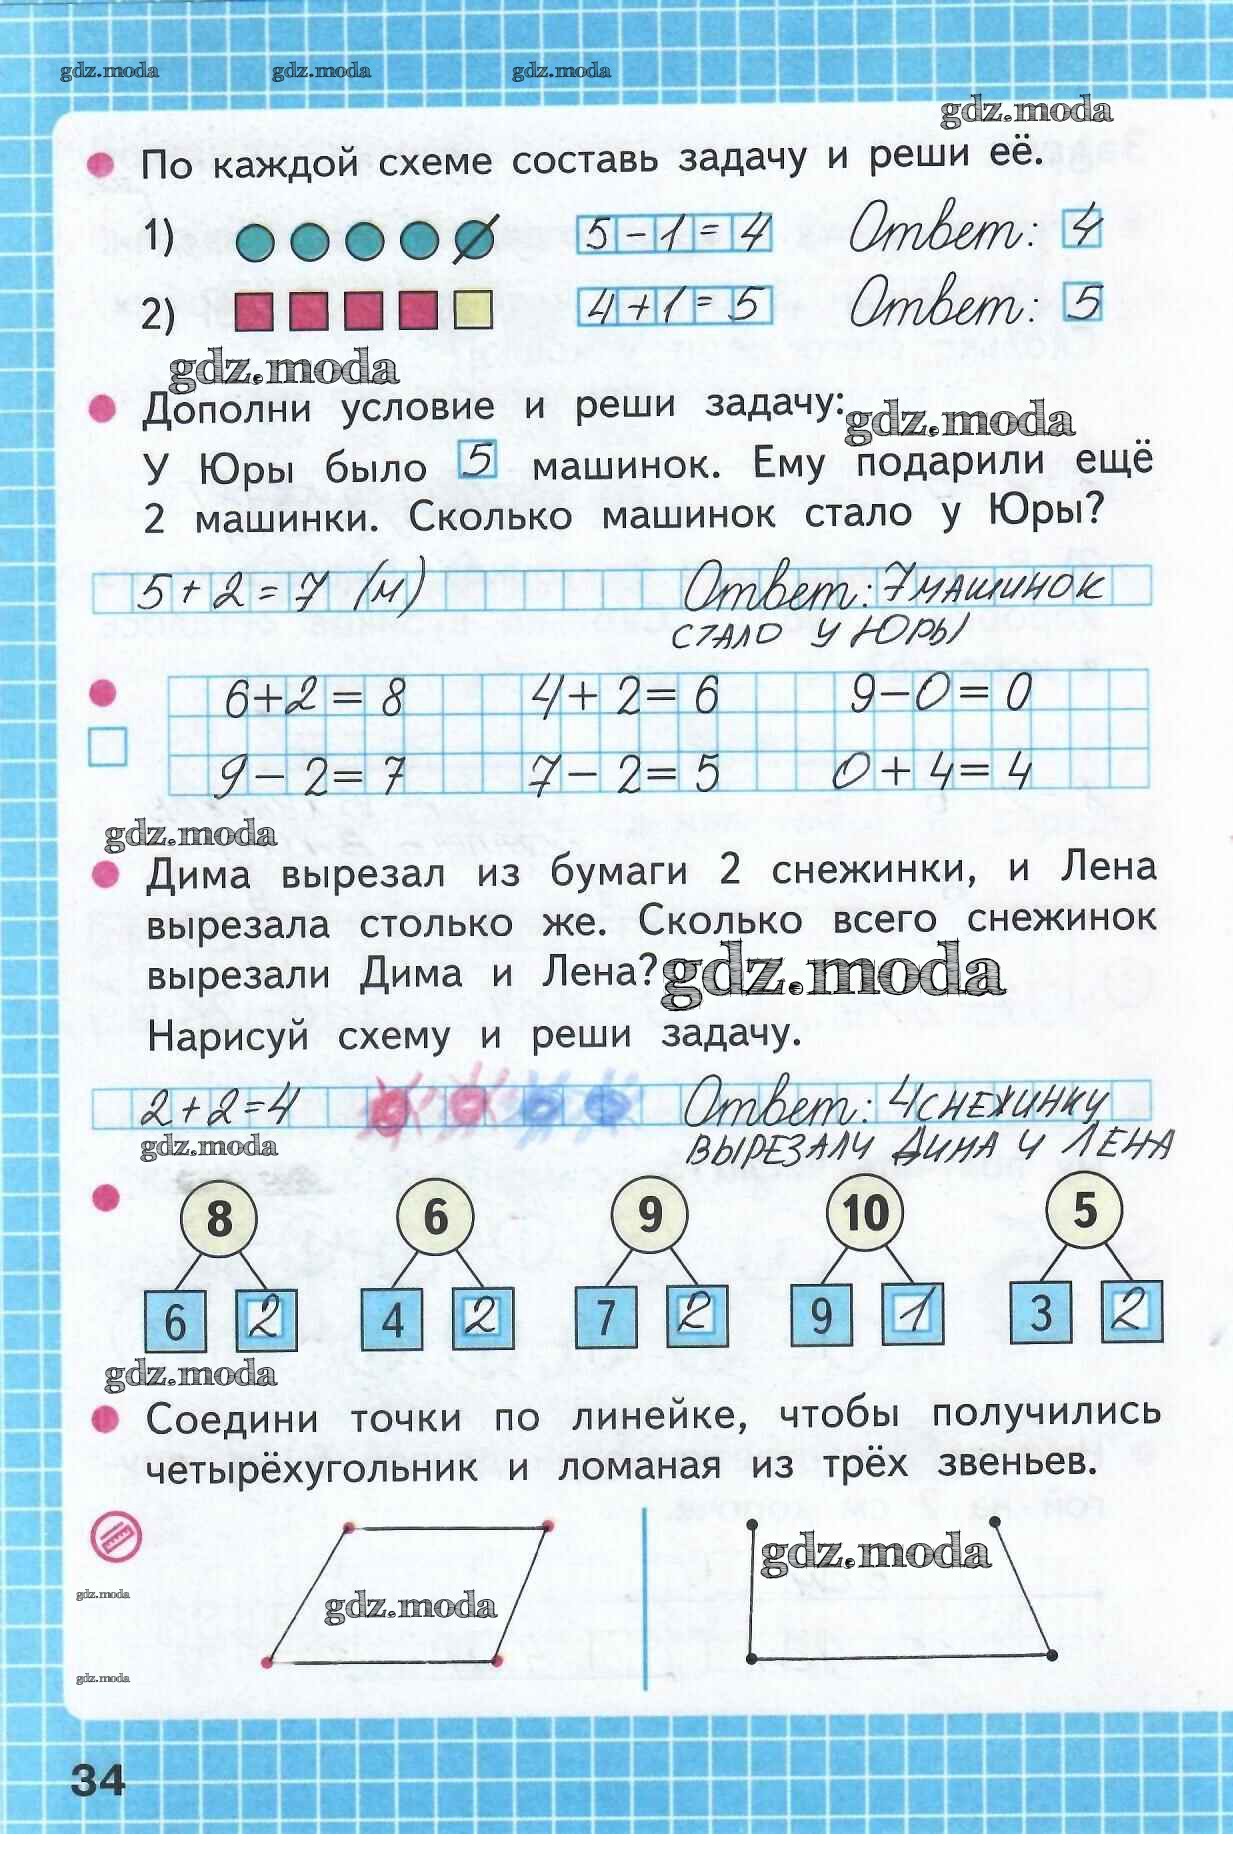 gdz.moda gdz.moda gdz.moda
gdz.moda
По каждой схеме составь задачу и реши её.
1) 5-1=4 Ответ: 4
2) 4+1=5 Ответ: 5
gdz.moda
Дополни условие и реши задачу:
gdz.moda
У Юры было 5 машинок. Ему подарили ещё
2 машинки. Сколько машинок стало у Юры?
5+2=7 (м) Ответ: 7 машинок
стало у Юры
6+2=8 4+2=6 9-0=0
9-2=7 7-2=5 0+4=4
gdz.moda
Дима вырезал из бумаги 2 снежинки, и Лена
вырезала столько же. Сколько всего снежинок
вырезали Дима и Лена?
gdz.moda
Нарисуй схему и реши задачу.
2+2=4 Ответ: 4 снежинку
вырезали Дима и Лена
gdz.moda
8 6 9 10 5
6 2 4 2 7 2 9 1 3 2
gdz.moda
Соедини точки по линейке, чтобы получились
четырёхугольник и ломаная из трёх звеньев.
gdz.moda
gdz.moda
gdz.moda
gdz.moda
34